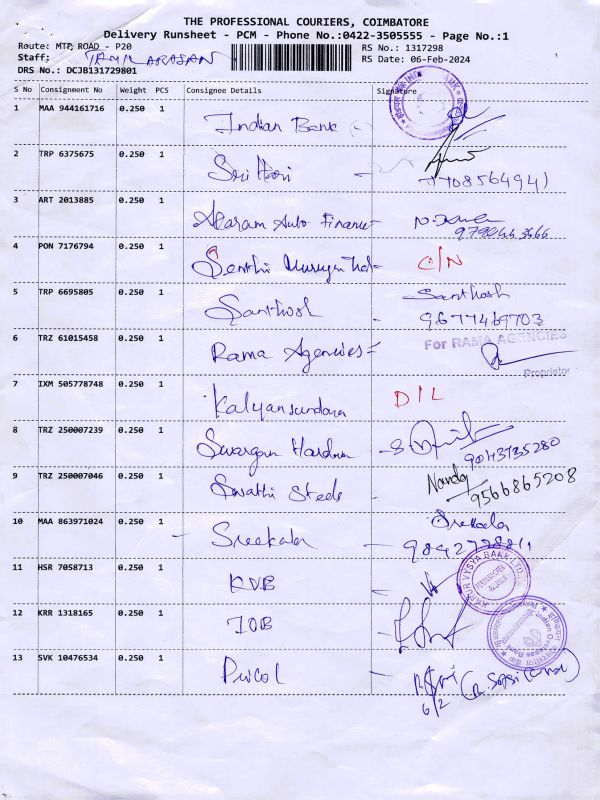 THE PROFESSIONAL COURIERS, COIMBATORE
Delivery Runsheet - PCM - Phone No.:0422-3505555 - Page No.:1
Route: MTP ROAD - P20
RS No.: 1317298
Staff: TAMIL ARASAN
RS Date: 06-Feb-2024
DRS No.: DCJB131729801
S No Consignment No Weight PCS Consignee Details Signature
1 MAA 944161716 0.250 1 Indian Bank
2 TRP 6375675 0.250 1 Sri Hari
3 ART 2013885 0.250 1 Auto Finance
4 PON 7176794 0.250 1 Senthil Murugan C/N
5 TRP 6695805 0.250 1 Santhosh Santhosh
9677469703
6 TRZ 61015458 0.250 1 Rama Agencies For RAMA AGENCIES
Proprietor
7 IXM 505778748 0.250 1 Kalyansundara D/L
8 TRZ 250007239 0.250 1
9043735280
9 TRZ 250007046 0.250 1 Swathi Steels Nanda
9566865208
10 MAA 863971024 0.250 1 Sreekala Sreekala
11 HSR 7058713 0.250 1 KVB
KARUR VYSYA BANK LTD
12 KRR 1318165 0.250 1 IOB
Indian Overseas Bank
13 SVK 10476534 0.250 1 Pricol
6/2